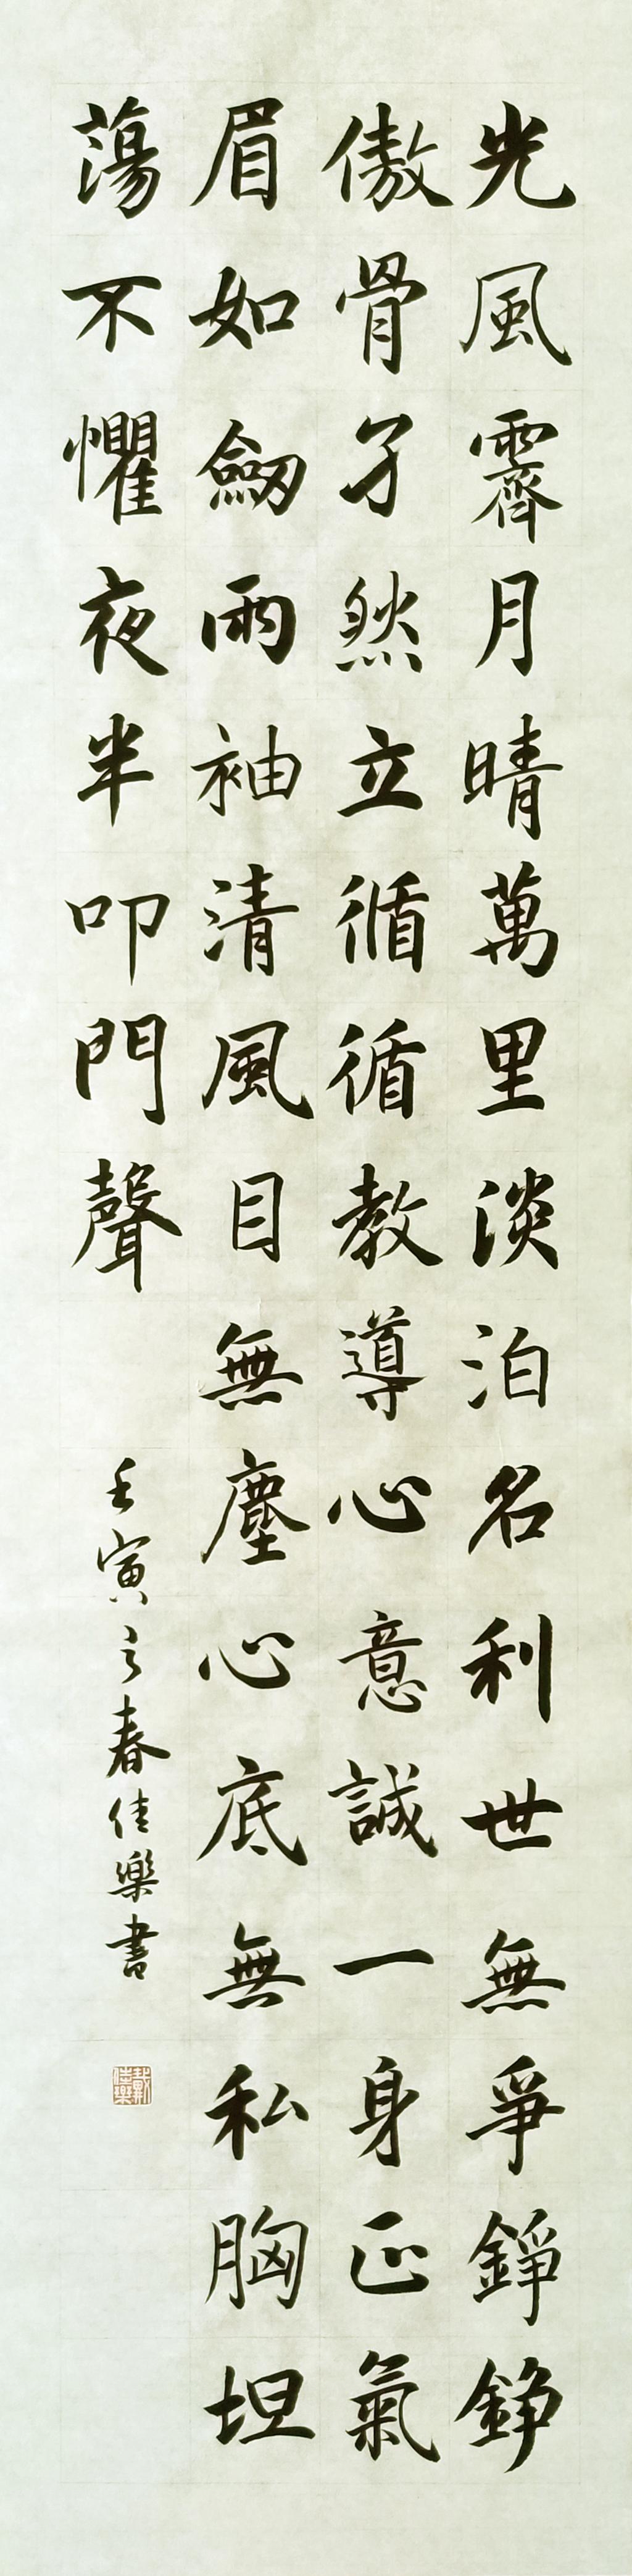 光風霽月晴萬里淡泊名利世無爭錚錚
傲骨孑然立循循教導心意誠一身正氣
眉如劒兩袖清風目無塵心底無私胸坦
蕩不懼夜半叩門聲
壬寅之春佳樂書
戴佳樂